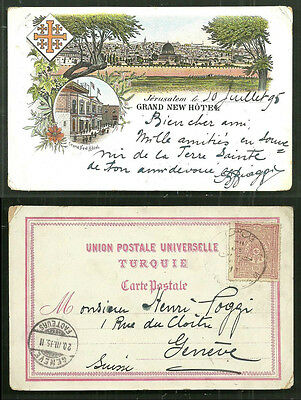 Jérusalem le 10 Juillet 95
GRAND NEW HÔTEL
Bien cher ami
Mille amitiés en souve
nir de la Terre Sainte
de ton ami devoué
Grand New Hôtel.
UNION POSTALE UNIVERSELLE
TURQUIE
Carte Postale
M Monsieur Henri Poggi
1 Rue du Cloître
Genève
Suisse
GENÈVE
20.VII.95.11
FACTEURS